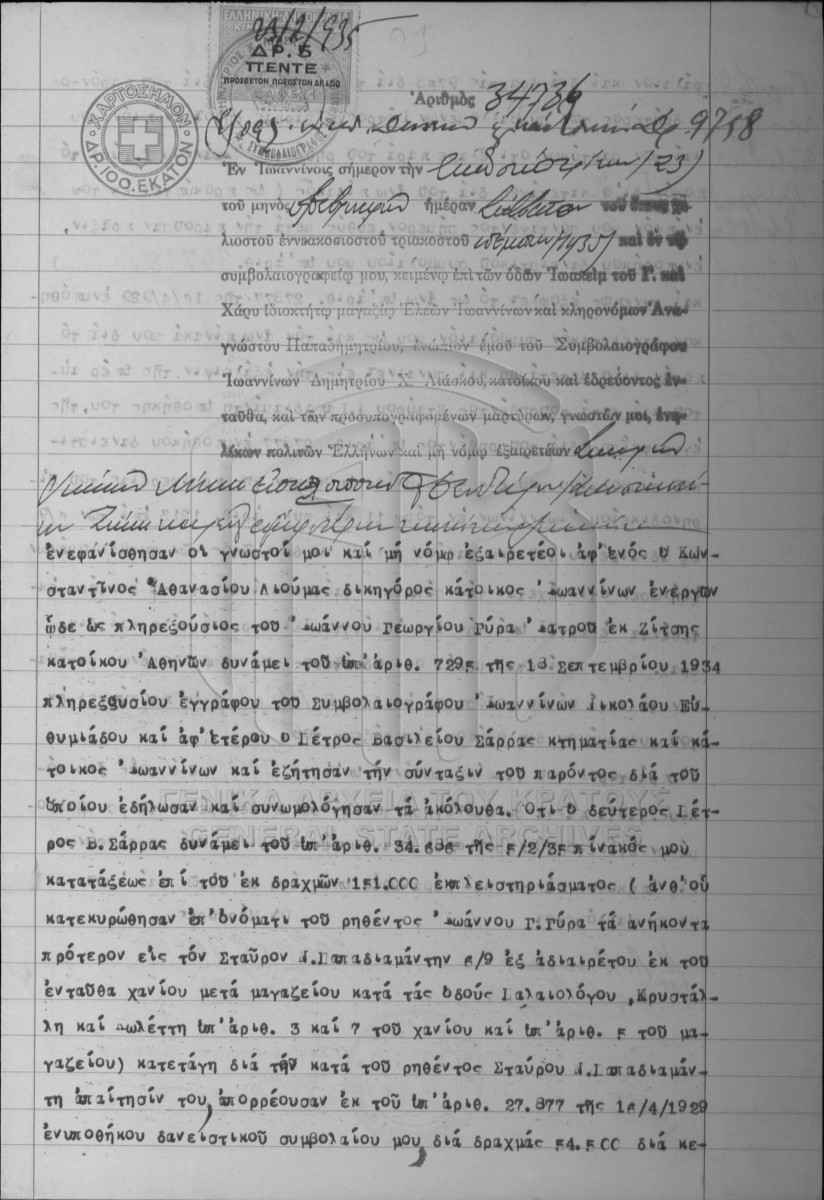 23/2/935
ΕΛΛΗΝΙΚΗ ΔΗΜΟΚΡΑΤΙΑ
ΔΡ. 5
ΠΕΝΤΕ
ΧΑΡΤΟΣΗΜΟΝ
ΔΡ. 100. ΕΚΑΤΟΝ
Ἀριθμὸς 34736
9758
Ἐν Ἰωαννίνοις σήμερον τὴν εἰκοστὴν τρίτην (23)
τοῦ μηνὸς Φεβρουαρίου ἡμέραν Σάββατον τοῦ ἔτους χι-
λιοστοῦ ἐννεακοσιοστοῦ τριακοστοῦ πέμπτου (1935) καὶ ἐν τῷ
συμβολαιογραφείῳ μου, κειμένῳ ἐπὶ τῶν ὁδῶν Ἰωακεὶμ τοῦ Γ. καὶ
Χάρυ ἰδιοκτήτῳ μαγαζίῳ Ἐλεῶν Ἰωαννίνων καὶ κληρονόμων Ἀνα-
γνώστου Παπαδημητρίου, ἐνώπιον ἐμοῦ τοῦ Συμβολαιογράφου
Ἰωαννίνων Δημητρίου Χ. Λιάσκου, κατοίκου καὶ ἑδρεύοντος ἐν-
ταῦθα, καὶ τῶν προσυπογραφομένων μαρτύρων, γνωστῶν μοι, ἐνη-
λίκων πολιτῶν Ἑλλήνων καὶ μὴ νόμῳ ἐξαιρετέων
ἐνεφανίσθησαν οἱ γνωστοί μοι καί μή νόμῳ ἐξαιρετέοι ἀφ'ἑνός ὁ Κων-
σταντῖνος Ἀθανασίου Λιούμας δικηγόρος κάτοικος Ἰωαννίνων ἐνεργῶν
ὧδε ὡς πληρεξούσιος τοῦ Ἰωάννου Γεωργίου Γύρα Ἰατροῦ ἐκ Ζίτσης
κατοίκου Ἀθηνῶν δυνάμει τοῦ ὑπ'ἀριθ. 7295 τῆς 18 Σεπτεμβρίου 1934
πληρεξουσίου ἐγγράφου τοῦ Συμβολαιογράφου Ἰωαννίνων Νικολάου Εὐ-
θυμιάδου καί ἀφ'ἑτέρου ὁ Πέτρος Βασιλείου Σάρρας κτηματίας καί κά-
τοικος Ἰωαννίνων καί ἐζήτησαν τήν σύνταξιν τοῦ παρόντος διά τοῦ
ὁποίου ἐδήλωσαν καί συνωμολόγησαν τά ἀκόλουθα. Ὅτι ὁ δεύτερος Πέτ-
ρος Β. Σάρρας δυνάμει τοῦ ὑπ'ἀριθ. 34.686 τῆς 5/2/35 πίνακός μου
κατατάξεως ἐπί τοῦ ἐκ δραχμῶν 151.000 ἐκπλειστηριάσματος ( ἀνθ'οὗ
κατεκυρώθησαν ἐπ'ὀνόματι τοῦ ρηθέντος Ἰωάννου Γ. Γύρα τά ἀνήκοντα
πρότερον εἰς τόν Σταῦρον Ν. Παπαδιαμάντην 6/9 ἐξ ἀδιαιρέτου ἐκ τοῦ
ἐνταῦθα χανίου μετά μαγαζείου κατά τάς ὁδούς Παλαιολόγου, Κρυστάλ-
λη καί Δωλέττη ὑπ'ἀριθ. 3 καί 7 τοῦ χανίου καί ὑπ'ἀριθ. 5 τοῦ μα-
γαζείου) κατετάγη διά τήν κατά τοῦ ρηθέντος Σταύρου Ν. Παπαδιαμάν-
τη ἀπαίτησίν του, ἀπορρέουσαν ἐκ τοῦ ὑπ'ἀριθ. 27.877 τῆς 16/4/1929
ἐνυποθήκου δανειστικοῦ συμβολαίου μου, διά δραχμάς 54.500 διά κε-
ΓΕΝΙΚΑ ΑΡΧΕΙΑ ΤΟΥ ΚΡΑΤΟΥΣ
GENERAL STATE ARCHIVES